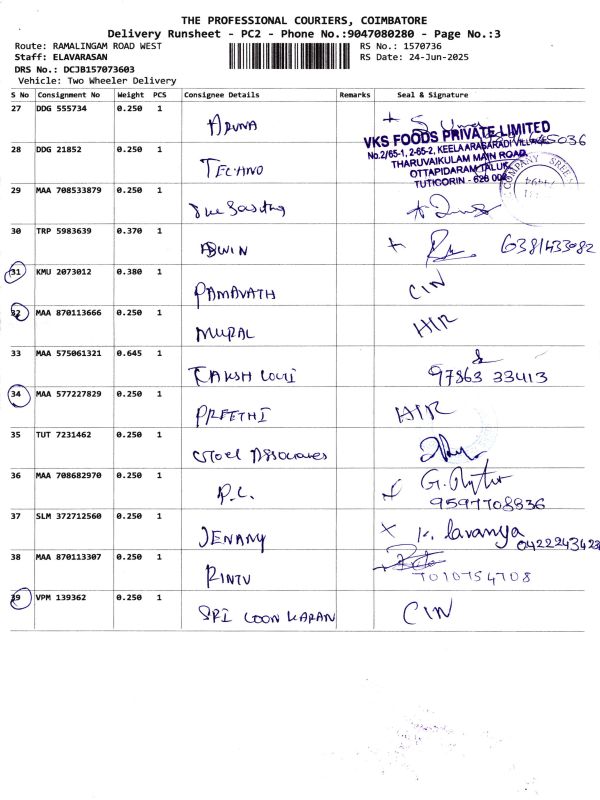 THE PROFESSIONAL COURIERS, COIMBATORE
Delivery Runsheet - PC2 - Phone No.:9047080280 - Page No.:3
Route: RAMALINGAM ROAD WEST RS No.: 1570736
Staff: ELAVARASAN RS Date: 24-Jun-2025
DRS No.: DCJB157073603
Vehicle: Two Wheeler Delivery
S No Consignment No Weight PCS Consignee Details Remarks Seal & Signature
27 DDG 555734 0.250 1
ARUNA
VKS FOODS PRIVATE LIMITED
No.2/65-1, 2-65-2, KEELA ARASARADI VILLAGE
THARUVAIKULAM MAIN ROAD,
OTTAPIDARAM TALUK,
TUTICORIN - 628
28 DDG 21852 0.250 1
TECHNO
COMPANY SREE
29 MAA 708533879 0.250 1
30 TRP 5983639 0.370 1
ADWIN 6381433082
31 KMU 2073012 0.380 1
PAMAVATH CIN
32 MAA 870113666 0.250 1
MURAL HIR
33 MAA 575061321 0.645 1
97863 33413
34 MAA 577227829 0.250 1
PREETHI HIR
35 TUT 7231462 0.250 1
Goel Associates
36 MAA 708682970 0.250 1
R.L. G.
9597708836
37 SLM 372712560 0.250 1
JENANY K. lavanya
38 MAA 870113307 0.250 1
RINTU 7010754708
39 VPM 139362 0.250 1
SRI LOON KARAN CIN